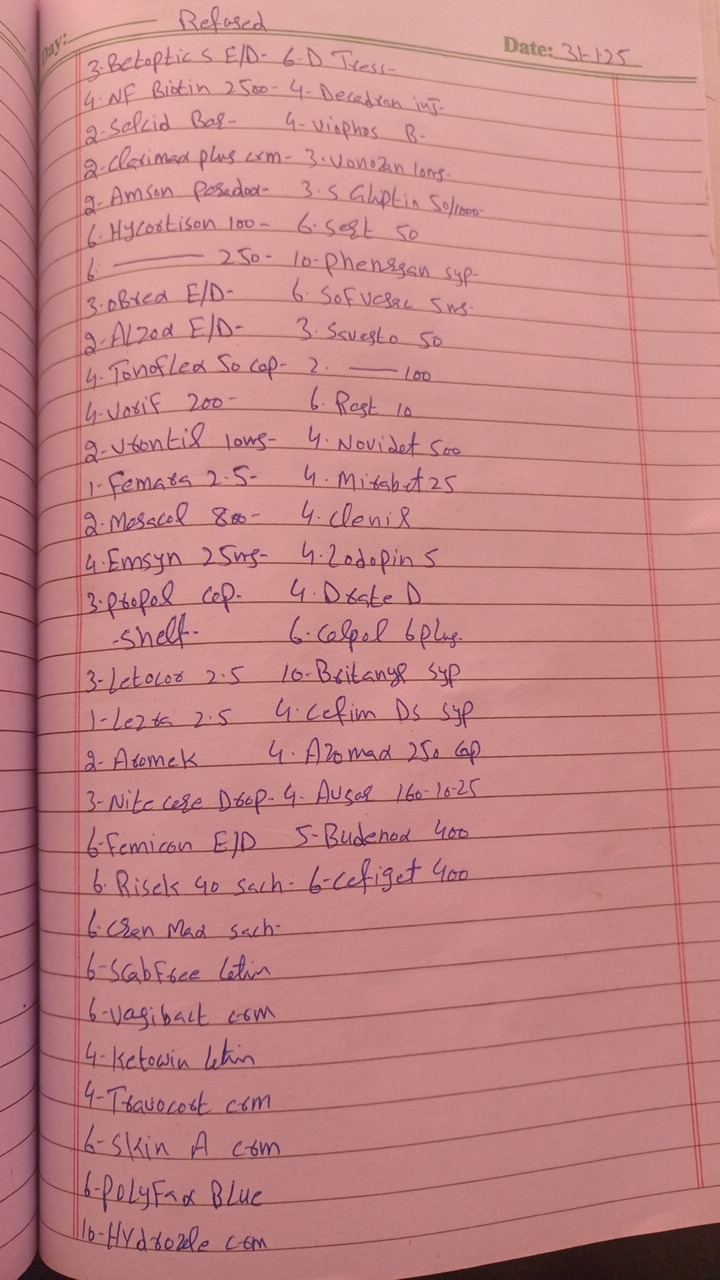 Refused
Day: Date: 31-1-25
3. Betoptic S E/D- 6-D Tress-
4. NF Biotin 2500- 4- Decedron inj-
2- Salcid Bar- 4- viophos B-
2- Clarimax plus crm- 3. Vonozan 10mg.
2- Amson Posadox- 3. S Gliptin 50/1000
6. Hycortison 100- 6. Sert 50
6. —— 250- 10- Phenergan syp-
3. oBred E/D- 6. Sofvesac 5mg.
2- ALZod E/D- 3. Savesto 50
4. Tonoflex 50 cap- 2. —— 100
4. Vorif 200- 6. Rast 10
2- Vrontil 10mg- 4. Novidet 500
1- Femara 2.5- 4. Mirabet 25
2- Mesacol 800- 4. Clenil
4. Emsyn 25mg- 4. Zodopin 5
3. propol cap. 4. Drate D
-Shelf- 6. Calpol 6plus-
3- Letocor 2.5 10- Britanyl syp
1- Lezra 2.5 4. Cefim Ds syp
2- Aromek 4. Azomax 250 Cap
3- Nite care Drop- 4. Ausar 160-10-25
6. Femicon E/D 5- Budenox 400
6. Risek 40 sach- 6- Cefiget 400
6. Cran Max sach-
6- ScabFree lotin
6- Vagibact crm
4- Ketowin lotin
4- Travocort crm
6- Skin A crm
6- PolyFax Blue
10- Hydrozole crm